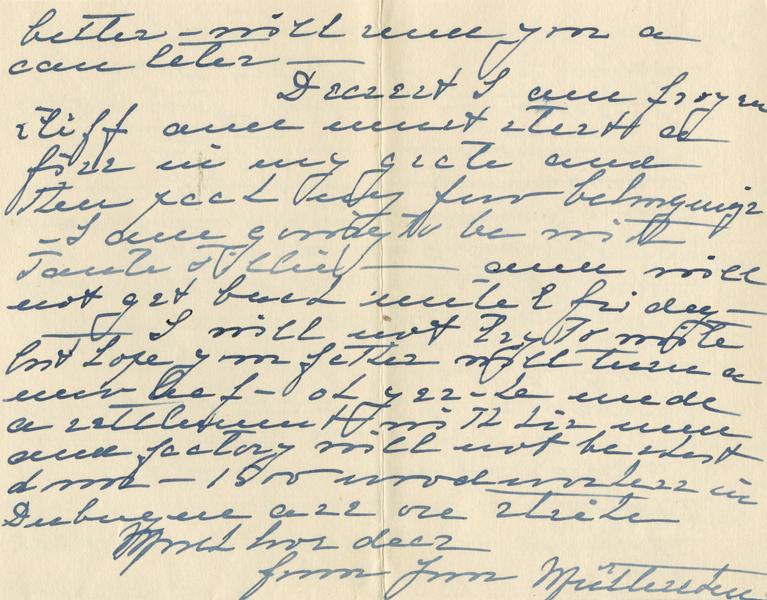 better – will send you a
can later —
Dearest I am frozen
stiff and must start a
fire in my grate and
then pack my few belongings
– I am going to be with
Tante Tillie — and will
not get back until friday –
— I will not try to write
but hope your father will turn a
new leaf – oh yes – he made
a settlement with his men
and factory will not be shut
down – 1800 woodworkers in
Dubuque are on strike
Much love dear
from your Mütterchen